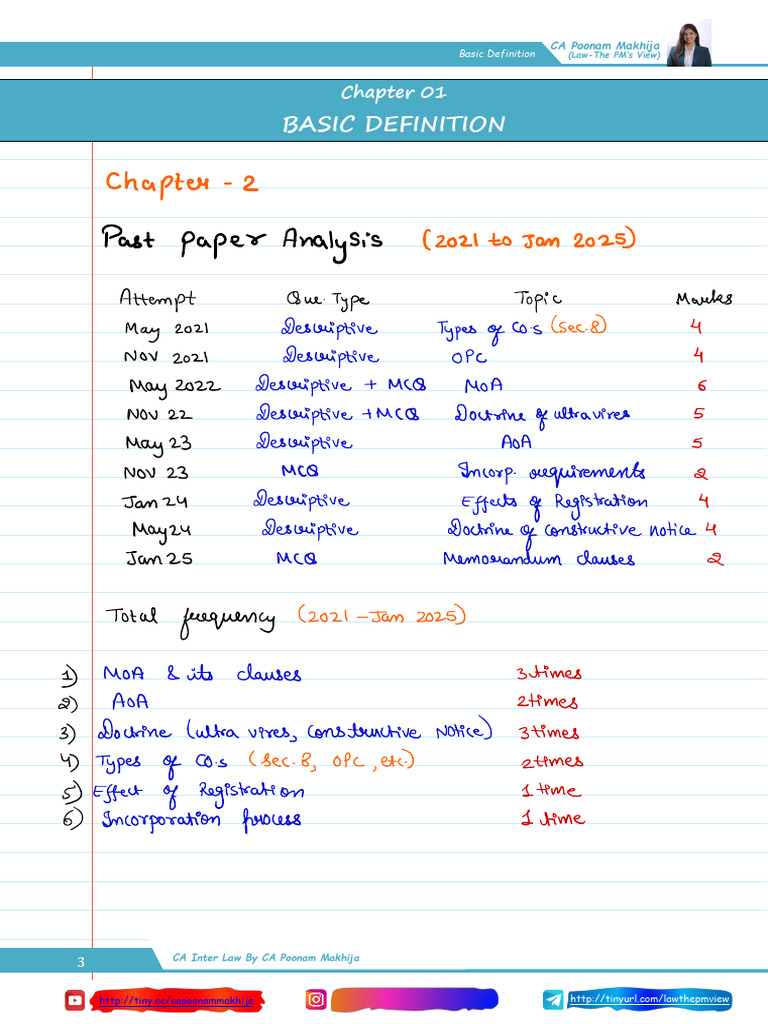 CA Poonam Makhija
Basic Definition
(Law-The PM's View)
Chapter 01
BASIC DEFINITION
Chapter - 2
Past paper Analysis (2021 to Jan 2025)
Attempt Que. Type Topic Marks
May 2021 Descriptive Types of CO.s (Sec.8) 4
Nov 2021 Descriptive OPC 4
May 2022 Descriptive + MCQ MoA 6
Nov 22 Descriptive +MCQ Doctrine of ultravires 5
May 23 Descriptive AoA 5
Nov 23 MCQ Incorp. requirements 2
Jan 24 Descriptive Effects of Registration 4
May24 Descriptive Doctrine of constructive notice 4
Jan 25 MCQ Memorandum clauses 2
Total frequency (2021 - Jan 2025)
1) MoA & its clauses 3 times
2) AoA 2 times
3) Doctrine (ultra vires, Constructive Notice) 3 times
4) Types of CO.s (Sec. 8, OPC, etc.) 2 times
5) Effect of Registration 1 time
6) Incorporation process 1 time
3 CA Inter Law By CA Poonam Makhija
http://tiny.cc/capoonammakhija http://tinyurl.com/lawthepmview